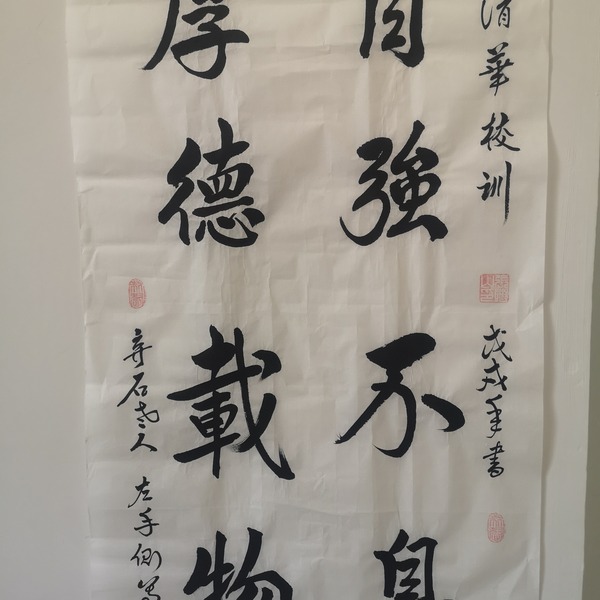 清華校訓 戊戌年書
自強不息
厚德載物
石老人 左手側